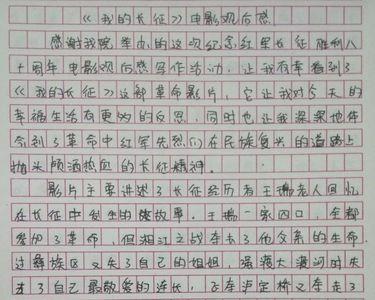 《我的长征》电影观后感
感谢我院举办的这次纪念红军长征胜利八
十周年电影观后感写作活动，让我有幸看到了
《我的长征》这部革命影片，它让我对今天的
幸福生活有更多的反思，同时也让我深深地体
会到了革命中红军先烈们在民族复兴的道路上
抛头颅洒热血的长征精神。
影片主要讲述了长征经历者王瑞老人回忆
在长征中发生的故事。王瑞一家四口，全都
参加了革命，但湘江之战夺去了他父亲的生命，
过彝族区又失了自己的姐姐，强渡大渡河时失
去了自己最敬爱的连长，飞夺泸定桥又夺走了